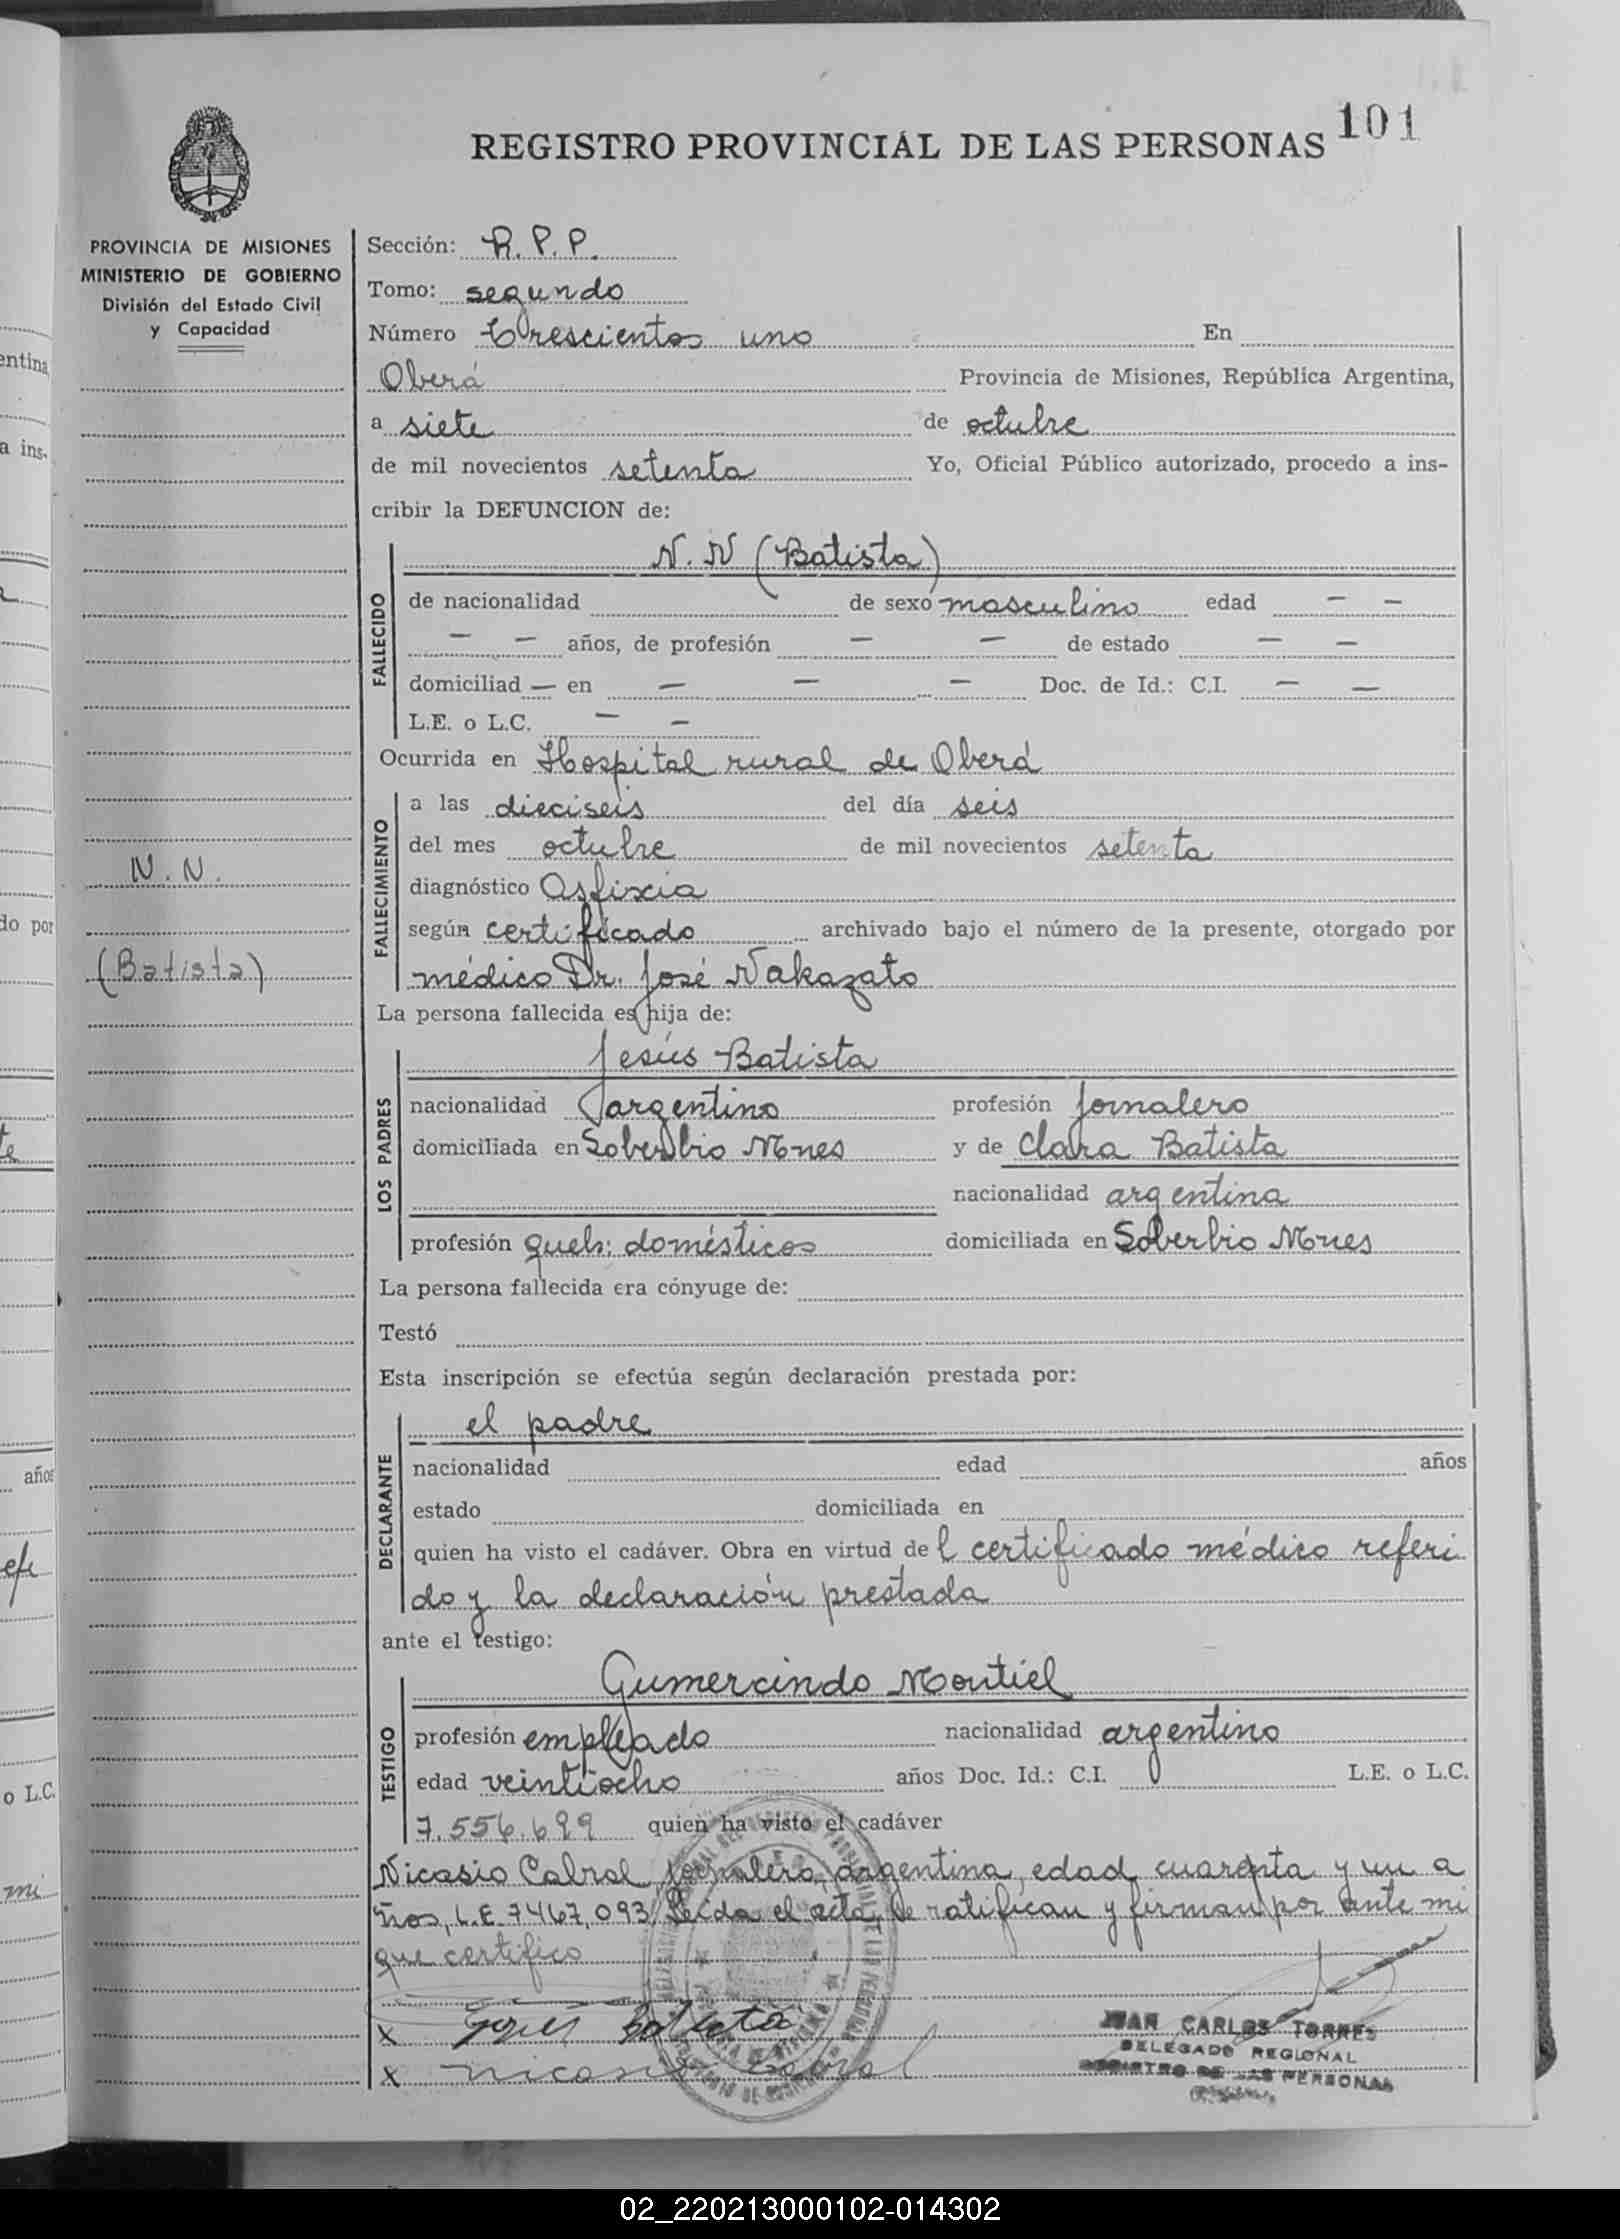 101
REGISTRO PROVINCIAL DE LAS PERSONAS
PROVINCIA DE MISIONES
MINISTERIO DE GOBIERNO
División del Estado Civil
y Capacidad
N. N.
(Batista)
Sección: R. P. P.
Tomo: segundo
Número Trescientos uno En
Oberá Provincia de Misiones, República Argentina,
a siete de octubre
de mil novecientos setenta Yo, Oficial Público autorizado, procedo a ins-
cribir la DEFUNCION de:
FALLECIDO
N. N (Batista)
de nacionalidad de sexo masculino edad — —
— — años, de profesión — — de estado — —
domiciliad — en — — — Doc. de Id.: C.I. — —
L.E. o L.C. — —
Ocurrida en Hospital rural de Oberá
FALLECIMIENTO
a las dieciseis del día seis
del mes octubre de mil novecientos setenta
diagnóstico Asfixia
según certificado archivado bajo el número de la presente, otorgado por
médico Dr. José Nakazato
La persona fallecida es hija de:
LOS PADRES
Jesús Batista
nacionalidad argentino profesión jornalero
domiciliada en Soberbio Mnes y de Clara Batista
nacionalidad argentina
profesión queh: domésticos domiciliada en Soberbio Mnes
La persona fallecida era cónyuge de:
Testó
Esta inscripción se efectúa según declaración prestada por:
DECLARANTE
el padre
nacionalidad edad años
estado domiciliada en
quien ha visto el cadáver. Obra en virtud del certificado médico referi
do y la declaración prestada
ante el testigo:
TESTIGO
Gumercindo Montiel
profesión empleado nacionalidad argentino
edad veintiocho años Doc. Id.: C.I. L.E. o L.C.
7.556.699 quien ha visto el cadáver
Nicasio Cabral jornalero, argentina, edad cuarenta y un a
ños, L.E. 7467,093. Leida el acta, se ratifican y firman por ante mi
que certifico
x Batista
x nicasio Cabral
JUAN CARLOS TORRES
DELEGADO REGIONAL
REGISTRO DE LAS PERSONAS
02_220213000102-014302